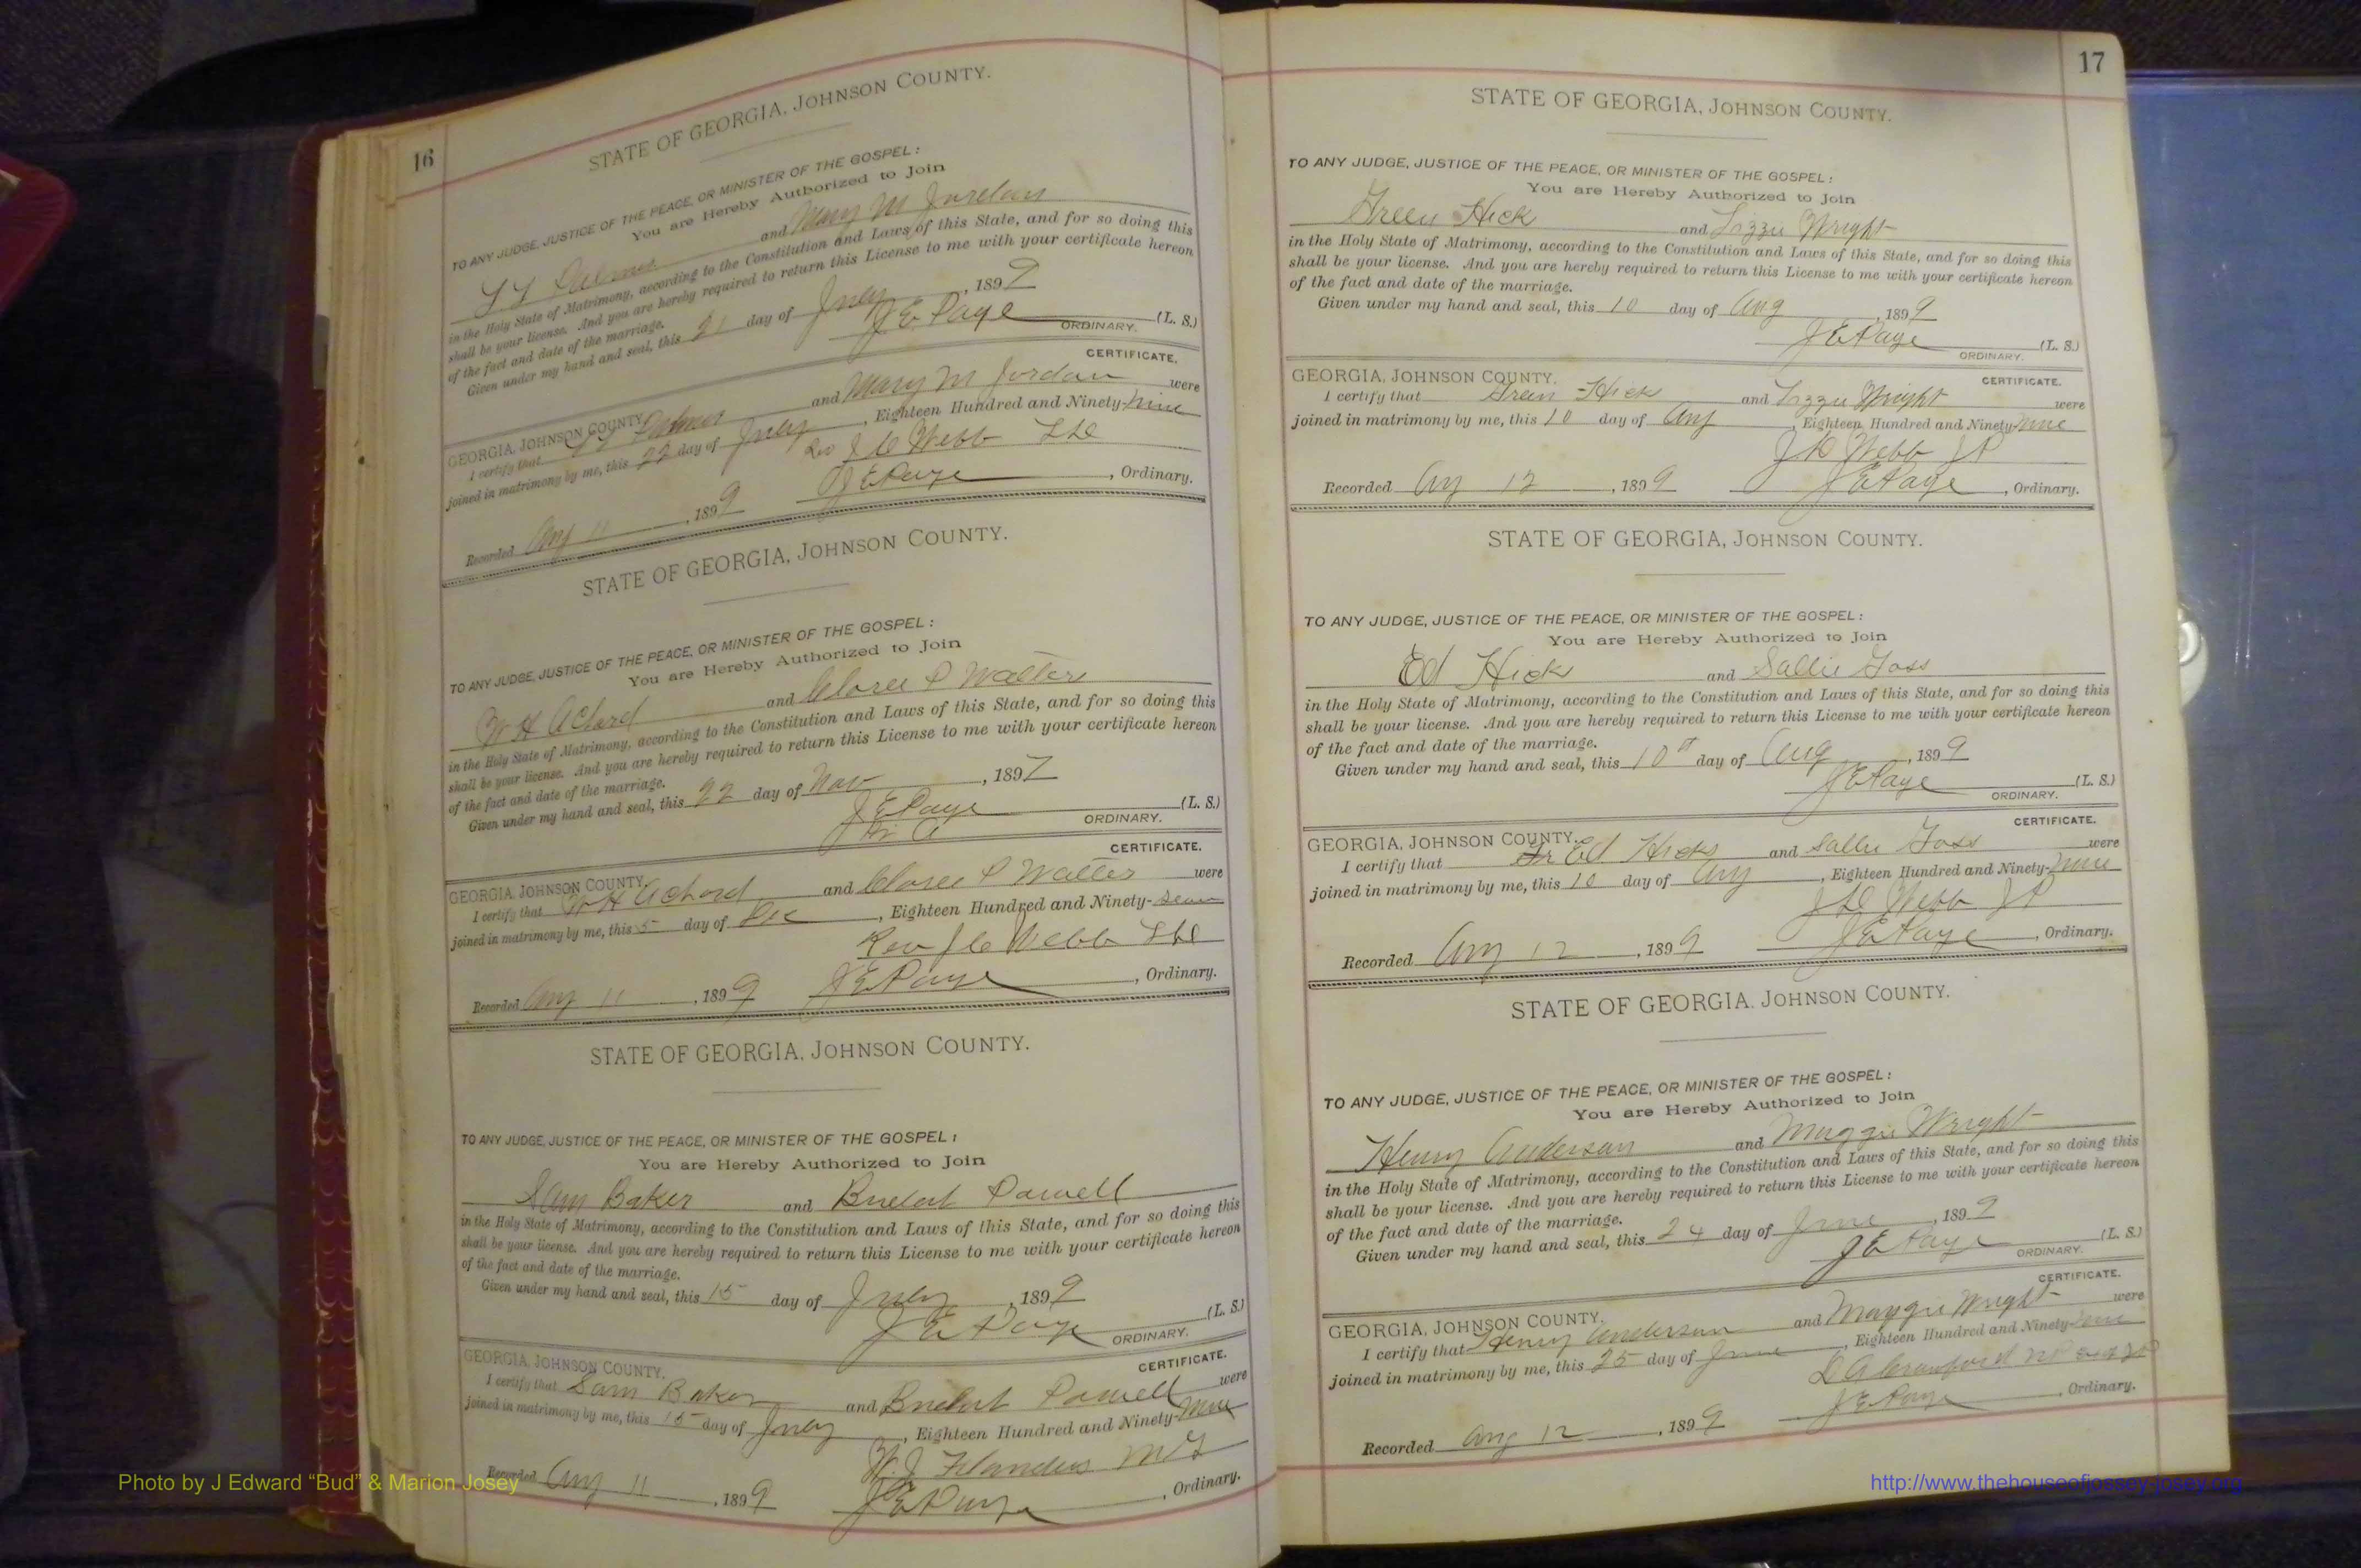 16
STATE OF GEORGIA, JOHNSON COUNTY.
TO ANY JUDGE, JUSTICE OF THE PEACE, OR MINISTER OF THE GOSPEL:
You are Hereby Authorized to Join
and Mary M Jordan
in the Holy State of Matrimony, according to the Constitution and Laws of this State, and for so doing this
shall be your license. And you are hereby required to return this License to me with your certificate hereon
of the fact and date of the marriage.
Given under my hand and seal, this 21 day of July, 1899
J E Page (L. S.)
ORDINARY.
CERTIFICATE.
GEORGIA, JOHNSON COUNTY.
I certify that and Mary M Jordan were
joined in matrimony by me, this 22 day of July, Eighteen Hundred and Ninety-nine
Rev J C Webb
Recorded Aug 11, 1899 J E Page, Ordinary.
STATE OF GEORGIA, JOHNSON COUNTY.
TO ANY JUDGE, JUSTICE OF THE PEACE, OR MINISTER OF THE GOSPEL:
You are Hereby Authorized to Join
W H Achord and P Walters
in the Holy State of Matrimony, according to the Constitution and Laws of this State, and for so doing this
shall be your license. And you are hereby required to return this License to me with your certificate hereon
of the fact and date of the marriage.
Given under my hand and seal, this 22 day of Nov, 1897
J E Page (L. S.)
ORDINARY.
CERTIFICATE.
GEORGIA, JOHNSON COUNTY.
I certify that W H Achord and P Walters were
joined in matrimony by me, this 5 day of Dec, Eighteen Hundred and Ninety-
Rev J C Webb
Recorded Aug 11, 1899 J E Page, Ordinary.
STATE OF GEORGIA, JOHNSON COUNTY.
TO ANY JUDGE, JUSTICE OF THE PEACE, OR MINISTER OF THE GOSPEL:
You are Hereby Authorized to Join
Sam Baker and Powell
in the Holy State of Matrimony, according to the Constitution and Laws of this State, and for so doing this
shall be your license. And you are hereby required to return this License to me with your certificate hereon
of the fact and date of the marriage.
Given under my hand and seal, this 15 day of July, 1899
J E Page (L. S.)
ORDINARY.
CERTIFICATE.
GEORGIA, JOHNSON COUNTY.
I certify that Sam Baker and Powell were
joined in matrimony by me, this 15 day of July, Eighteen Hundred and Ninety-Nine
W. J. Flanders M G
Recorded Aug 11, 1899 J E Page, Ordinary.
Photo by J Edward “Bud” & Marion Josey
17
STATE OF GEORGIA, JOHNSON COUNTY.
TO ANY JUDGE, JUSTICE OF THE PEACE, OR MINISTER OF THE GOSPEL:
You are Hereby Authorized to Join
Green Hick and Lizzie Wright
in the Holy State of Matrimony, according to the Constitution and Laws of this State, and for so doing this
shall be your license. And you are hereby required to return this License to me with your certificate hereon
of the fact and date of the marriage.
Given under my hand and seal, this 10 day of Aug, 1899
J E Page (L. S.)
ORDINARY.
CERTIFICATE.
GEORGIA, JOHNSON COUNTY.
I certify that Green Hick and Lizzie Wright were
joined in matrimony by me, this 10 day of Aug, Eighteen Hundred and Ninety-Nine
Webb J P
Recorded Aug 12, 1899 J E Page, Ordinary.
STATE OF GEORGIA, JOHNSON COUNTY.
TO ANY JUDGE, JUSTICE OF THE PEACE, OR MINISTER OF THE GOSPEL:
You are Hereby Authorized to Join
Ed Hicks and Sallie Goss
in the Holy State of Matrimony, according to the Constitution and Laws of this State, and for so doing this
shall be your license. And you are hereby required to return this License to me with your certificate hereon
of the fact and date of the marriage.
Given under my hand and seal, this 10 day of Aug, 1899
J E Page (L. S.)
ORDINARY.
CERTIFICATE.
GEORGIA, JOHNSON COUNTY.
I certify that Ed Hicks and Sallie Goss were
joined in matrimony by me, this 10 day of Aug, Eighteen Hundred and Ninety-Nine
Webb J P
Recorded Aug 12, 1899 J E Page, Ordinary.
STATE OF GEORGIA, JOHNSON COUNTY.
TO ANY JUDGE, JUSTICE OF THE PEACE, OR MINISTER OF THE GOSPEL:
You are Hereby Authorized to Join
Henry Anderson and Maggie Wright
in the Holy State of Matrimony, according to the Constitution and Laws of this State, and for so doing this
shall be your license. And you are hereby required to return this License to me with your certificate hereon
of the fact and date of the marriage.
Given under my hand and seal, this 24 day of June, 1899
J E Page (L. S.)
ORDINARY.
CERTIFICATE.
GEORGIA, JOHNSON COUNTY.
I certify that Henry Anderson and Maggie Wright were
joined in matrimony by me, this 25 day of June, Eighteen Hundred and Ninety-nine
Crawford N P
Recorded Aug 12, 1899 J E Page, Ordinary.
http://www.thehouseofjossey-josey.org